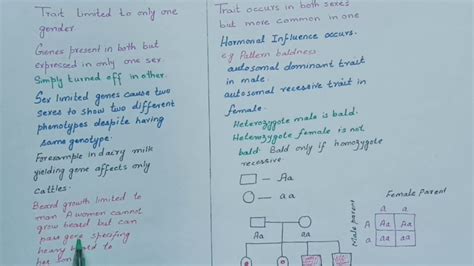 Trait limited to only one
gender
Genes present in both but
expressed in only one sex.
Simply turned off in other.
Sex limited genes cause two
sexes to show two different
phenotypes despite having
same genotype.
For example In dairy milk
yielding gene affects only
cattles.
Beard growth limited to
man A women cannot
grow beard but can
pass gene specifing
heavy beard to
her son
Trait occurs in both sexes
but more common in one
Hormonal Influence occurs.
e.g Pattern baldness
autosomal dominant trait
in male.
autosomal recessive trait in
female.
Heterozygote male is bald.
Heterozygote female is not
bald. Bald only if homozygote
recessive.
Aa
aa
Aa
aa
Female Parent
a
a
Male parent
A
Aa
Aa
a
aa
aa